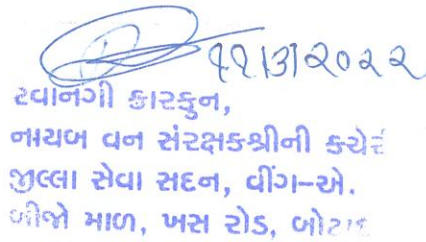 ૨૨/૩/૨૦૨૨
રવાનગી કારકુન,
નાયબ વન સંરક્ષકશ્રીની કચેરી
જીલ્લા સેવા સદન, વીંગ-એ.
બીજો માળ, ખસ રોડ, બોટાદ